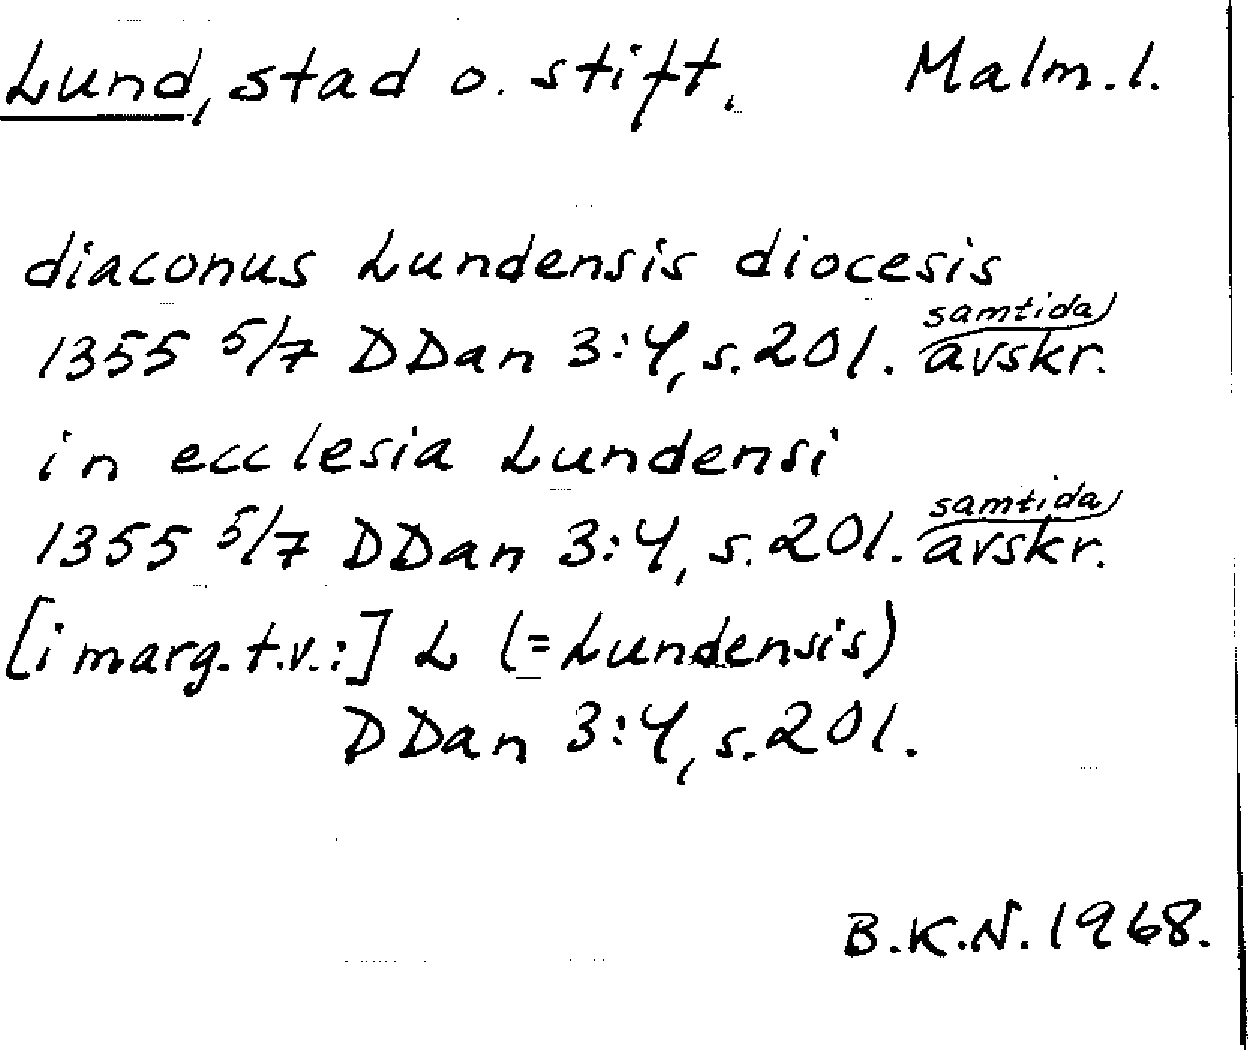 Lund, stad o. stift. Malm.l.
diaconus Lundensis diocesis
1355 5/7 DDan 3:4, s.201. samtida avskr.
in ecclesia Lundensi
1355 5/7 DDan 3:4, s.201. samtida avskr.
[i marg.t.v.:] L (=Lundensis)
DDan 3:4, s.201.
B.K.N. 1968.